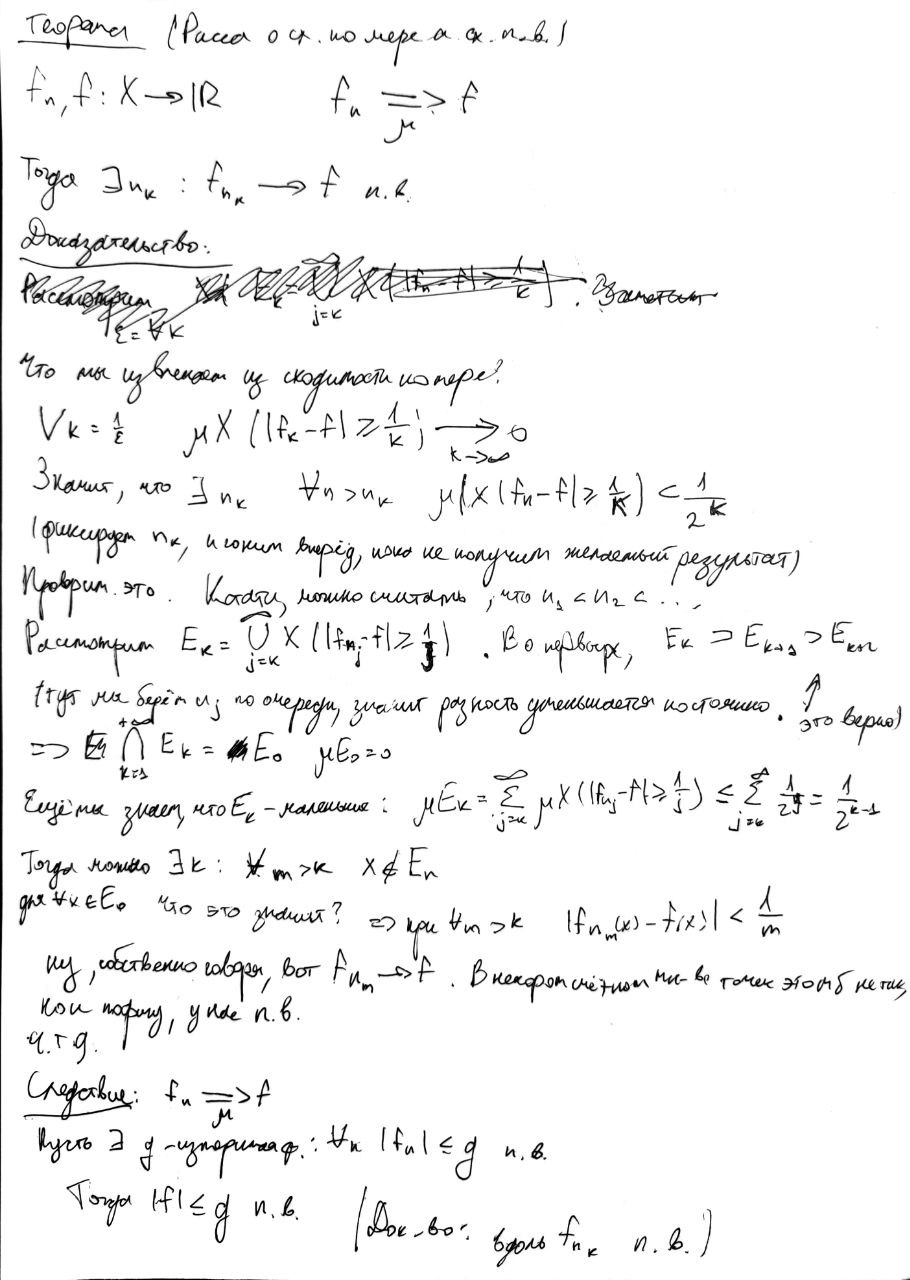 Теорема (Рисса о сх. по мере и сх. п.в.)
fₙ, f : X → ℝ    fₙ ⇒_μ f
Тогда ∃ n_k : f_{n_k} → f п.в.
Доказательство:
Что мы извлекаем из сходимости по мере?
∀k = 1/ε    μX(|f_k - f| ≥ 1/k) →_{k→∞} 0
Значит, что ∃ n_k    ∀n > n_k    μ(X(fₙ - f| ≥ 1/k) < 1/2^k
(фиксируем n_k, и гоним вперёд, пока не получим желаемый результат)
Проверим это. Кстати, можно считать, что n₁ < n₂ < ...
Рассмотрим E_k = ⋃_{j=k}^∞ X(|f_{n_j} - f| ≥ 1/j). Во первых, E_k ⊃ E_{k+1} ⊃ E_{k+2}
(тут мы берём n_j по очереди, значит разность уменьшается постоянно. ↑ это верно)
⇒ ⋂_{k=1}^{+∞} E_k = E₀    μE₀ = 0
Ещё мы знаем, что E_k - маленькие: μE_k = Σ_{j=k}^∞ μX(|f_{n_j} - f| ≥ 1/j) ≤ Σ_{j=k}^∞ 1/2^j = 1/2^{k-1}
Тогда можно ∃k : ∀m > k    x ∉ Eₙ
для ∀x ∈ E₀ Что это значит? ⇒ при ∀m > k    |f_{n_m}(x) - f(x)| < 1/m
ну, собственно говоря, вот f_{n_m} → f. В некотором счётном мн-ве точек это м б не так,
нам пофигу, у нас п.в.
ч.т.д.
Следствие: fₙ ⇒_μ f
Пусть ∃ g - измеримая ф.: ∀n |fₙ| ≤ g п.в.
Тогда |f| ≤ g п.в.    (Док-во: вдоль f_{n_k} п.в.)